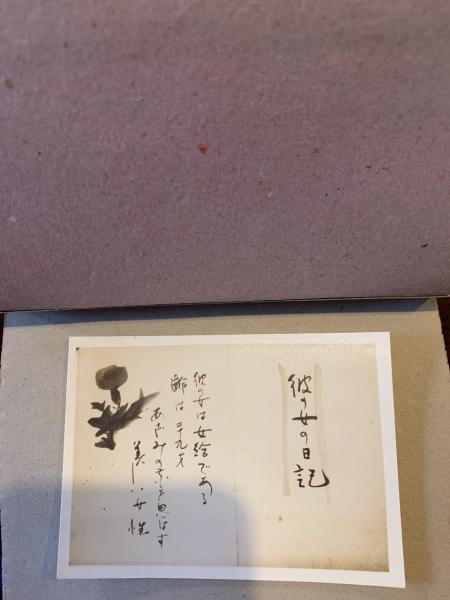 彼の女の日記
彼の女は女給である
齢は二十九才
あざみの花を思はす
美しい女性